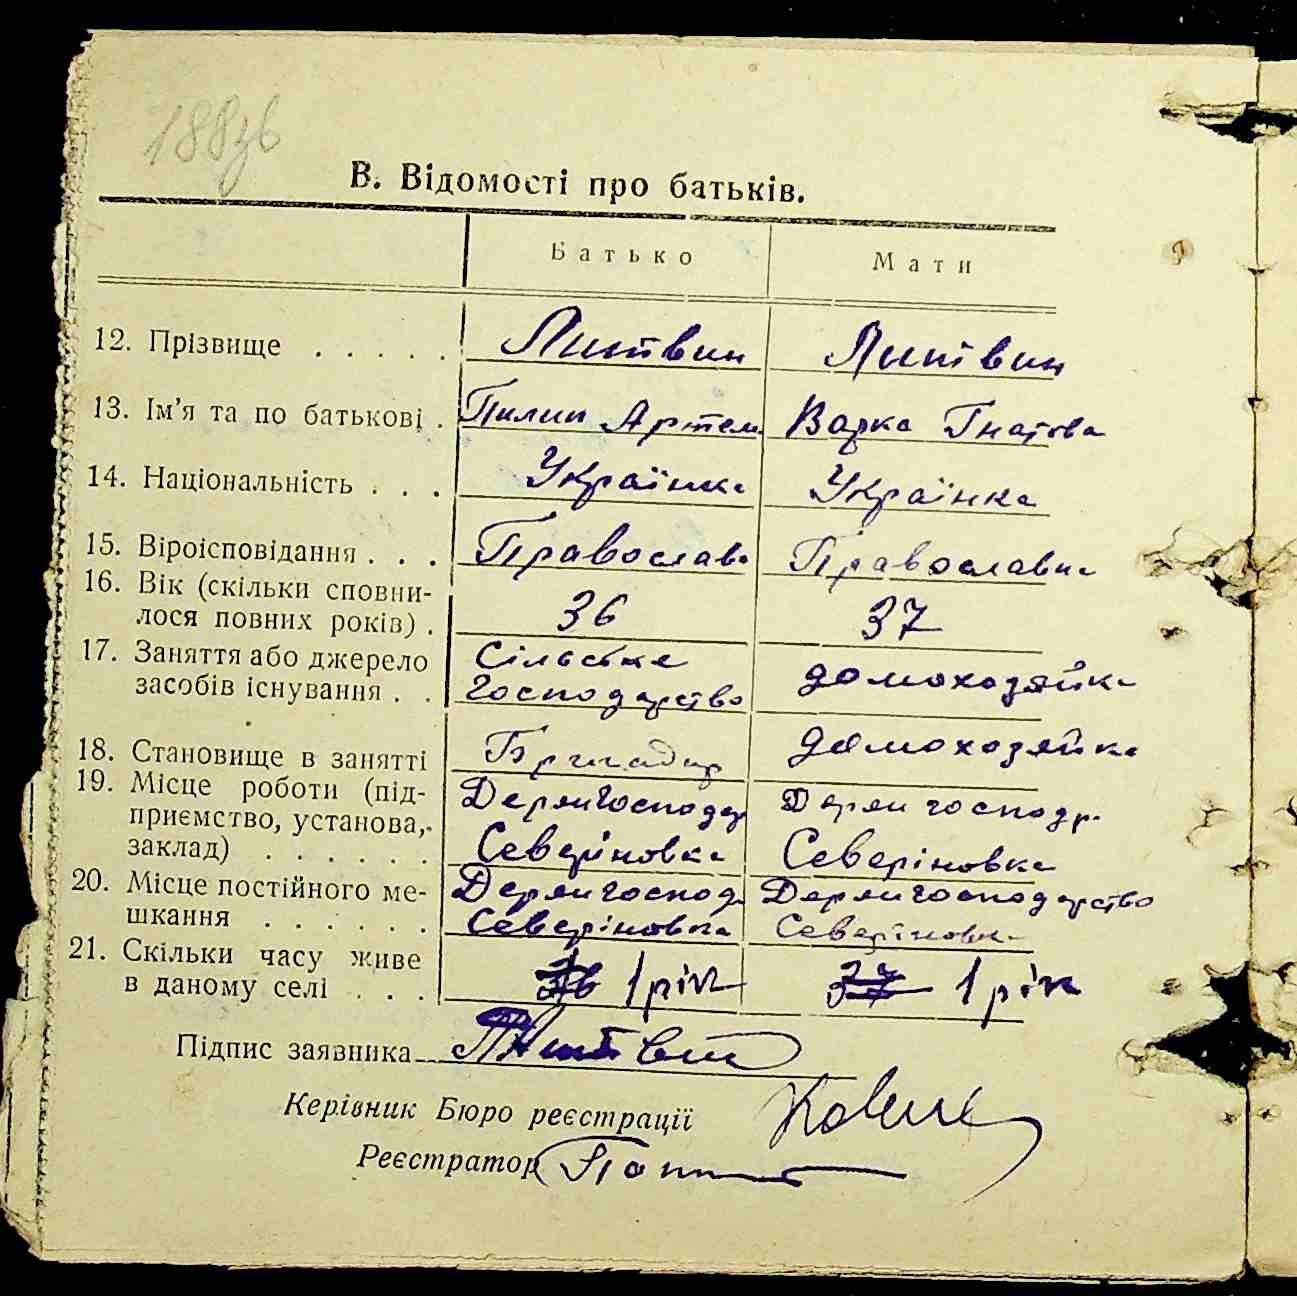 188зв
В. Відомості про батьків.
Батько Мати
12. Прізвище . . . . . Литвин Литвин
13. Ім'я та по батькові . Пилип Артем Варка Гнатова
14. Національність . . . Українка Українка
15. Віроісповідання . . . Православ Православна
16. Вік (скільки сповни-
лося повних років) . 36 37
17. Заняття або джерело Сільське
засобів існування . . господарство домохозяйка
18. Становище в занятті Бригадир домохозяйка
19. Місце роботи (під- Держгосподар Держгосподр.
приємство, установа,
заклад) . . . . . . Северіновка Северіновка
20. Місце постійного ме- Держгоспод. Держгосподарство
шкання . . . . . . Северіновка Северіновка
21. Скільки часу живе
в даному селі . . . 36 1 рік 37 1 рік
Підпис заявника Литвин
Керівник Бюро реєстрації
Реєстратор